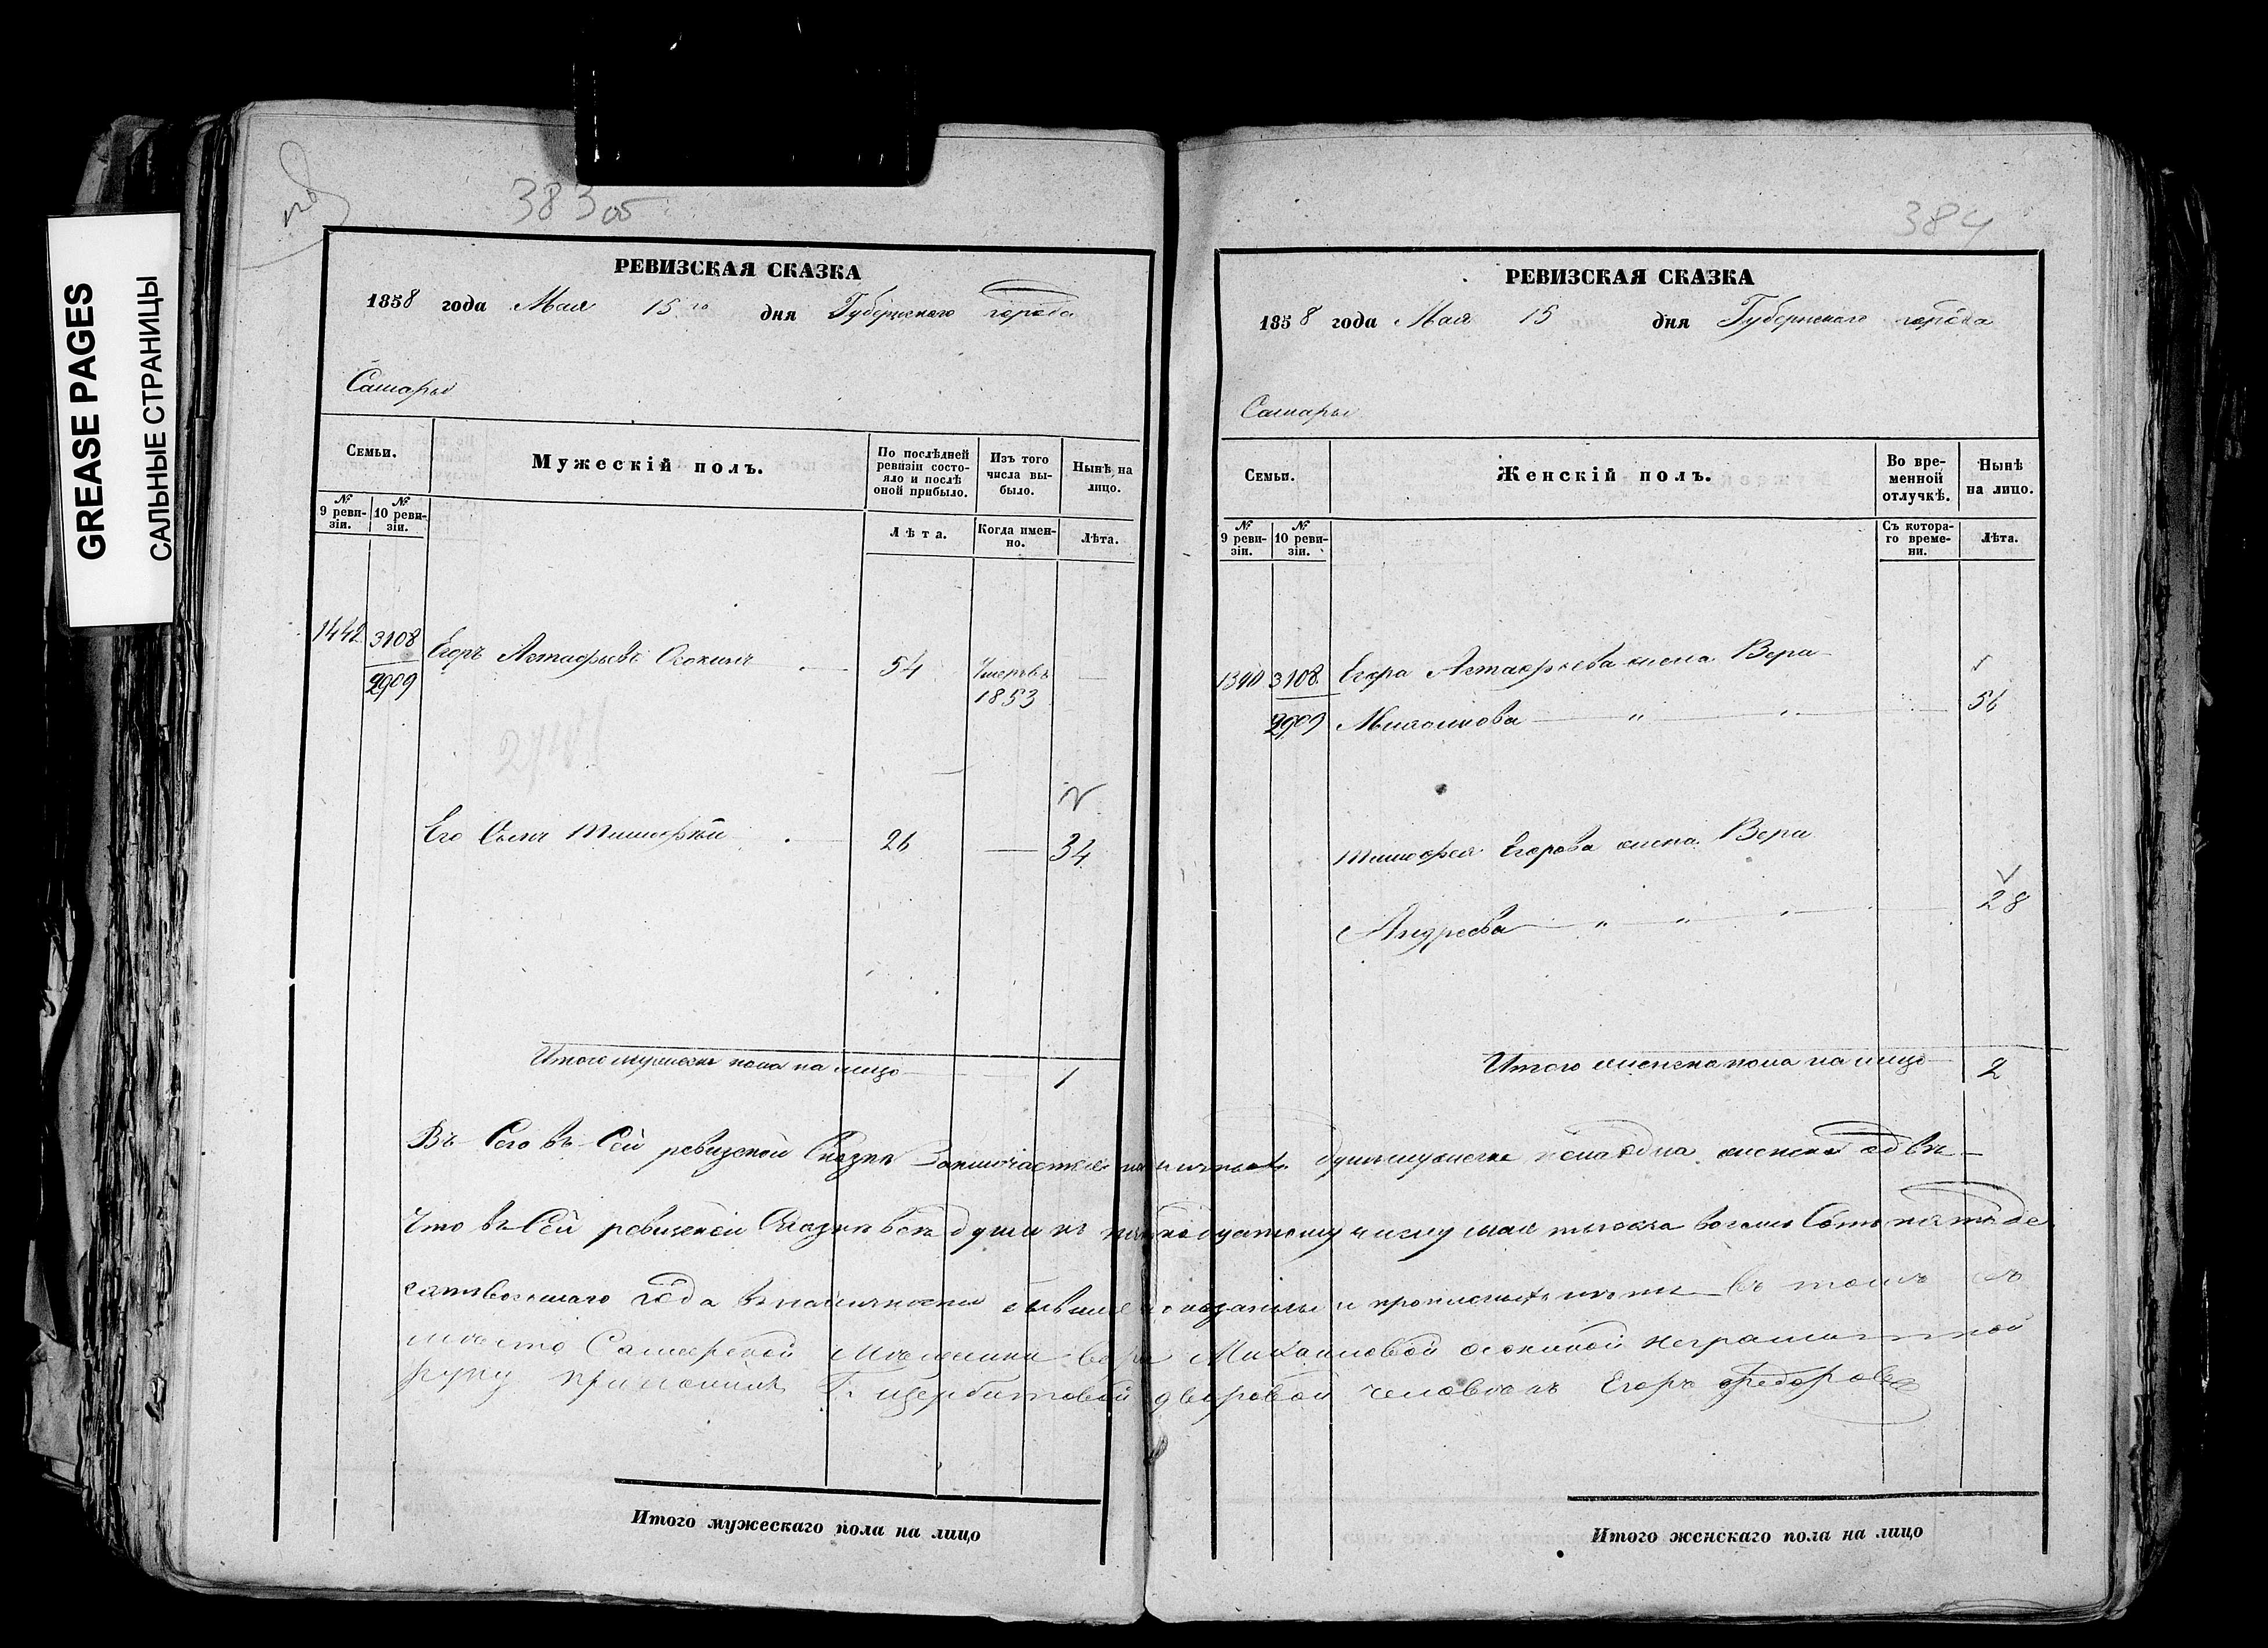 GREASE PAGES
САЛЬНЫЕ СТРАНИЦЫ
383 об
РЕВИЗСКАЯ СКАЗКА
1858 года Мая 15го дня Губернскаго города
Самары
Семьи.
Мужескій полъ.
По послѣдней ревизіи состояло и послѣ оной прибыло.
Изъ того числа выбыло.
Нынѣ на лицо.
№ 9 ревизіи.
№ 10 ревизіи.
Лѣта.
Когда именно.
Лѣта.
1442 3108 Егоръ Астафьевъ Осокинъ 54 Умеръ въ
2909 1853
Его Сынъ Тимофей 26 34
Итого мужеска пола на лицо 1
384
РЕВИЗСКАЯ СКАЗКА
1858 года Мая 15 дня Губернскаго города
Самары
Семьи.
Женскій полъ.
Во временной отлучкѣ.
Нынѣ на лицо.
№ 9 ревизіи.
№ 10 ревизіи.
Съ котораго времени.
Лѣта.
1340 3108 Егора Астафьева жена Вера
2909 Михайлова " " 56
Тимофея Егорова жена Вера
Андреева " " " 28
Итого женска пола на лицо 2
Въ Сей ревизской Сказки Заключается наличныхъ душъ мужска пола одна женска двѣ
Что въ Сей ревизской Сказки все души къ пятнадцатому числу мая тысяча восемь Сотъ пятьде
сятъ восьмаго года въ наличности бывшие показаны и прописныхъ нетъ въ томъ
место Самарской мещанки Веры Михайловой Осокиной неграмотной
руку приложилъ Г. Щербитовой дворовой человекъ Егоръ Федоровъ
Итого мужескаго пола на лицо
Итого женскаго пола на лицо